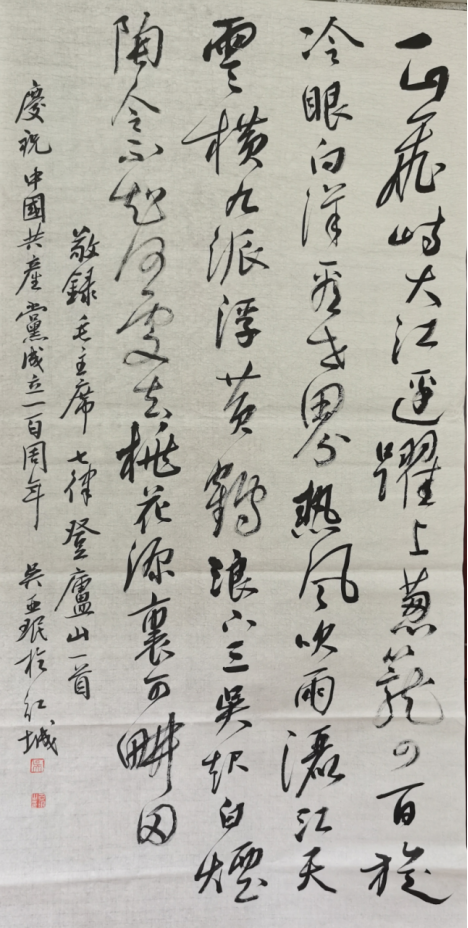 一山飛峙大江邊躍上蔥蘢四百旋
冷眼向洋看世界熱風吹雨灑江天
雲橫九派浮黃鶴浪下三吳起白煙
陶令不知何處去桃花源裏可畊田
敬錄毛主席七律登廬山一首
慶祝中國共產黨成立一百周年 吳亞珉於江城